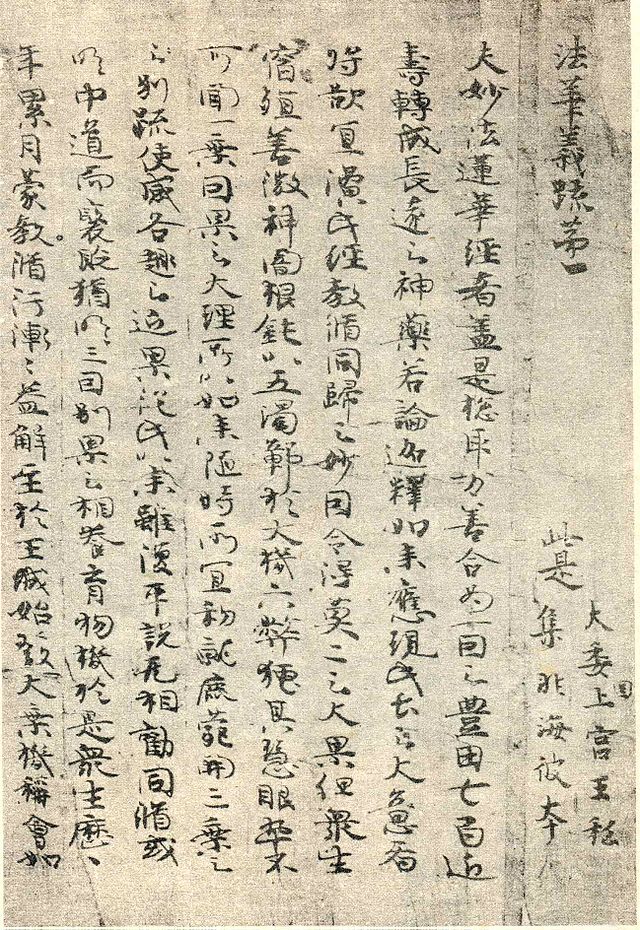 法華義疏第一
此是
大委上宮王私
集非海彼本
夫妙法蓮華経者盖是惣取万善合為一因之豊田七百近
壽轉成長遠之神藥若論迦釋如来應現此土之大意者
将欲宜演此経教脩同歸之妙因令得莫二之大果但衆生
宿殖善微神闇根鈍以五濁鄣於大機六弊掩其慧眼卒不
可聞一乗因果之大理所以如来随時所宜初就鹿苑開三乗之
之別疏使感各趣之近果従此以来雖復平説无相勸同脩或
明中道而褒貶猶明三因別果之相養育物機於是衆生歴〻
年累月蒙教脩行漸〻益解至於王城始發大乗機稱會如